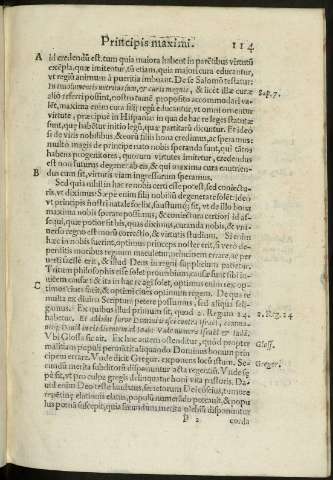 Principis maximi. 114
A id credendũ est. tum quia maiora habent in parẽtibus virtutũ
exẽpla, quæ imitentur, tũ etiam, quia maiori cura educantur,
vt regiũ animum à pueritia imbuant. De se Salomõ testatur:
In inuolumentis nutritus sum, & curis magnis, & licet illæ curæ Sap. 7.
aliò referri possint, nostro tunè proposito accommodari va-
lẽt, maxima enim cura filij regũ educuntur, vt omni ornentur
virtute, præcipuè in Hispania: in qua de hac re leges statutæ
sunt, quę habẽtur initio legũ, quæ partitarũ dicuntur. Et ideò
si de vitis nobilibus, & eorũ filijs bona credimus, ac speramus:
multò magis de principe nato nobis speranda sunt, qui tãtos
habens progenitores, quorum virtutes imitetur, credendus
est non futurus degener ab eis, & qui maxima cura enutrien-
B dus cum sit, virtutis viam ingressurum speramus.
Sed quia nihil in hac re nobis certi esse potest, sed coniectu-
ris, vt diximus: Sæpe enim filij nobiliũ degenerãt solẽt: ideo
vt principis nostri natale festiuè, faustumq; sit, vt de illo bona
maxima nobis sperare possimus, & coniectari certiori id as-
sequi, quæ potior sit his, quas diximus, curanda nobis, & vni-
uerso regno est morũ correctio, & virtutis studium. Si enim
hæc in nobis fuerint, optimus princeps noster erit, si verò de-
peritis moribus regnum maculetur,
Tritum philosophis esse solet prouerbium, causæ sunt sibi in-
uicem causæ: & ita in hac re agi solet, optimus enim rex op-
C timos ciues facit, & optimi ciues optimum regem. De qua re
multa ex diuina Scriptura petere possumus, sed aliqua seli-
gamus. Ex quibus illud primum sit, quod 2. Regum 24. 2. Reg. 24
habetur. Et addidit furor Domini irasci contra Israel, commo-
uitq; Dauid in eis dicentem ad Ioab: Vade numera Israel & Iuda.
Vbi Glossa sic ait. Ex hoc autem ostenditur, quòd propter Gloss.
malitiam populi permittit aliquando Dominus bonum prin-
cipem errare. Vnde dicit Gregor. exponens locũ istum. Se- Gregor.
cundũ merita subditorũ disponuntur acta regentiũ. Vnde sę
pè fit, vt pro culpa gregis delinquant boni vita pastoris. Da-
uid enim Deo teste laudatus, secretorum Dei cõscius, tumore
repẽtinę elationis elatus, populũ numerãdo peccauit, & popu
lus pœnã suscepit, quia secundum merita plebiũ disponuntur
P 2 corda